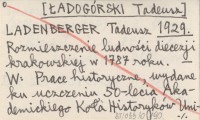 [ŁADOGÓRSKI Tadeusz]
LADENBERGER Tadeusz 1929.
Rozmieszczenie ludności diecezji
krakowskiej w 1787 roku.
W: Prace historyczne, wydane
ku uczczeniu 50-lecia Aka-
demickiego Koła Historyków Uni-